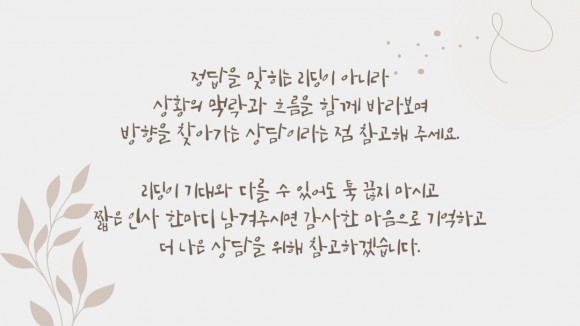 정답을 맞히는 리딩이 아니라
상황의 맥락과 흐름을 함께 바라보며
방향을 찾아가는 상담이라는 점 참고해 주세요.
리딩이 기대와 다를 수 있어도 툭 끊지 마시고
짧은 인사 한마디 남겨주시면 감사한 마음으로 기억하고
더 나은 상담을 위해 참고하겠습니다.